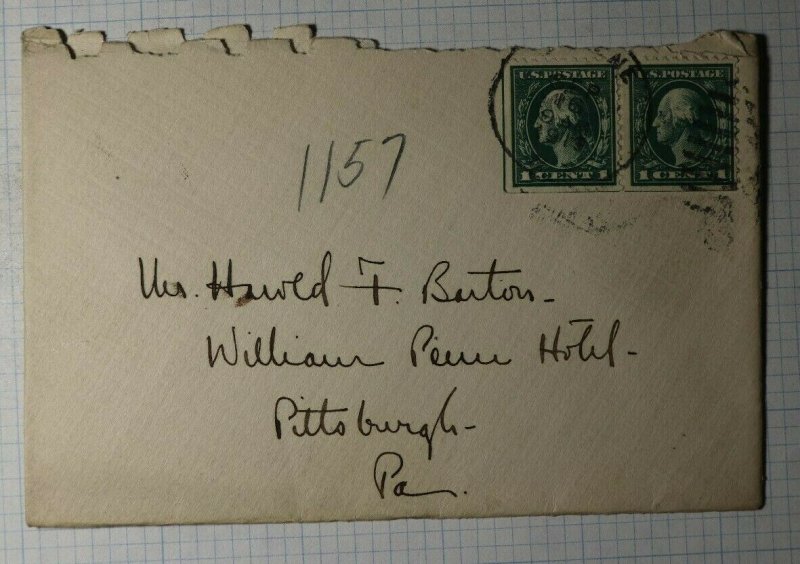 U.S. POSTAGE U.S. POSTAGE
1 CENT 1 1 CENT 1
1157
Mr. Harold F. Barton-
William Penn Hotel-
Pittsburgh-
Pa.